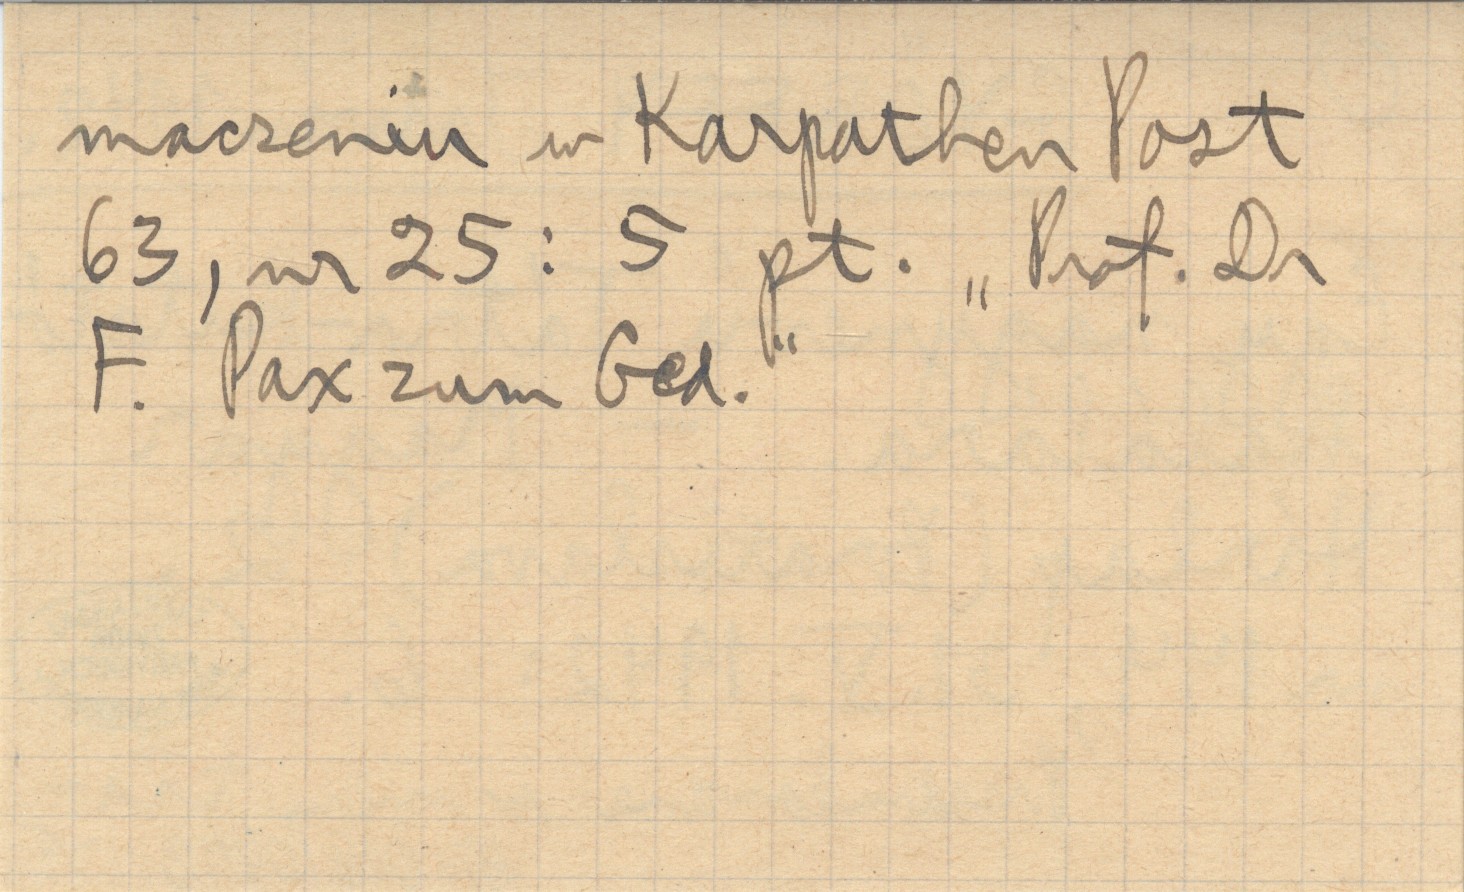 maczeniu w Karpathen Post
63, nr 25: 5 pt. „Prof. Dr
F. Pax zum Ged."